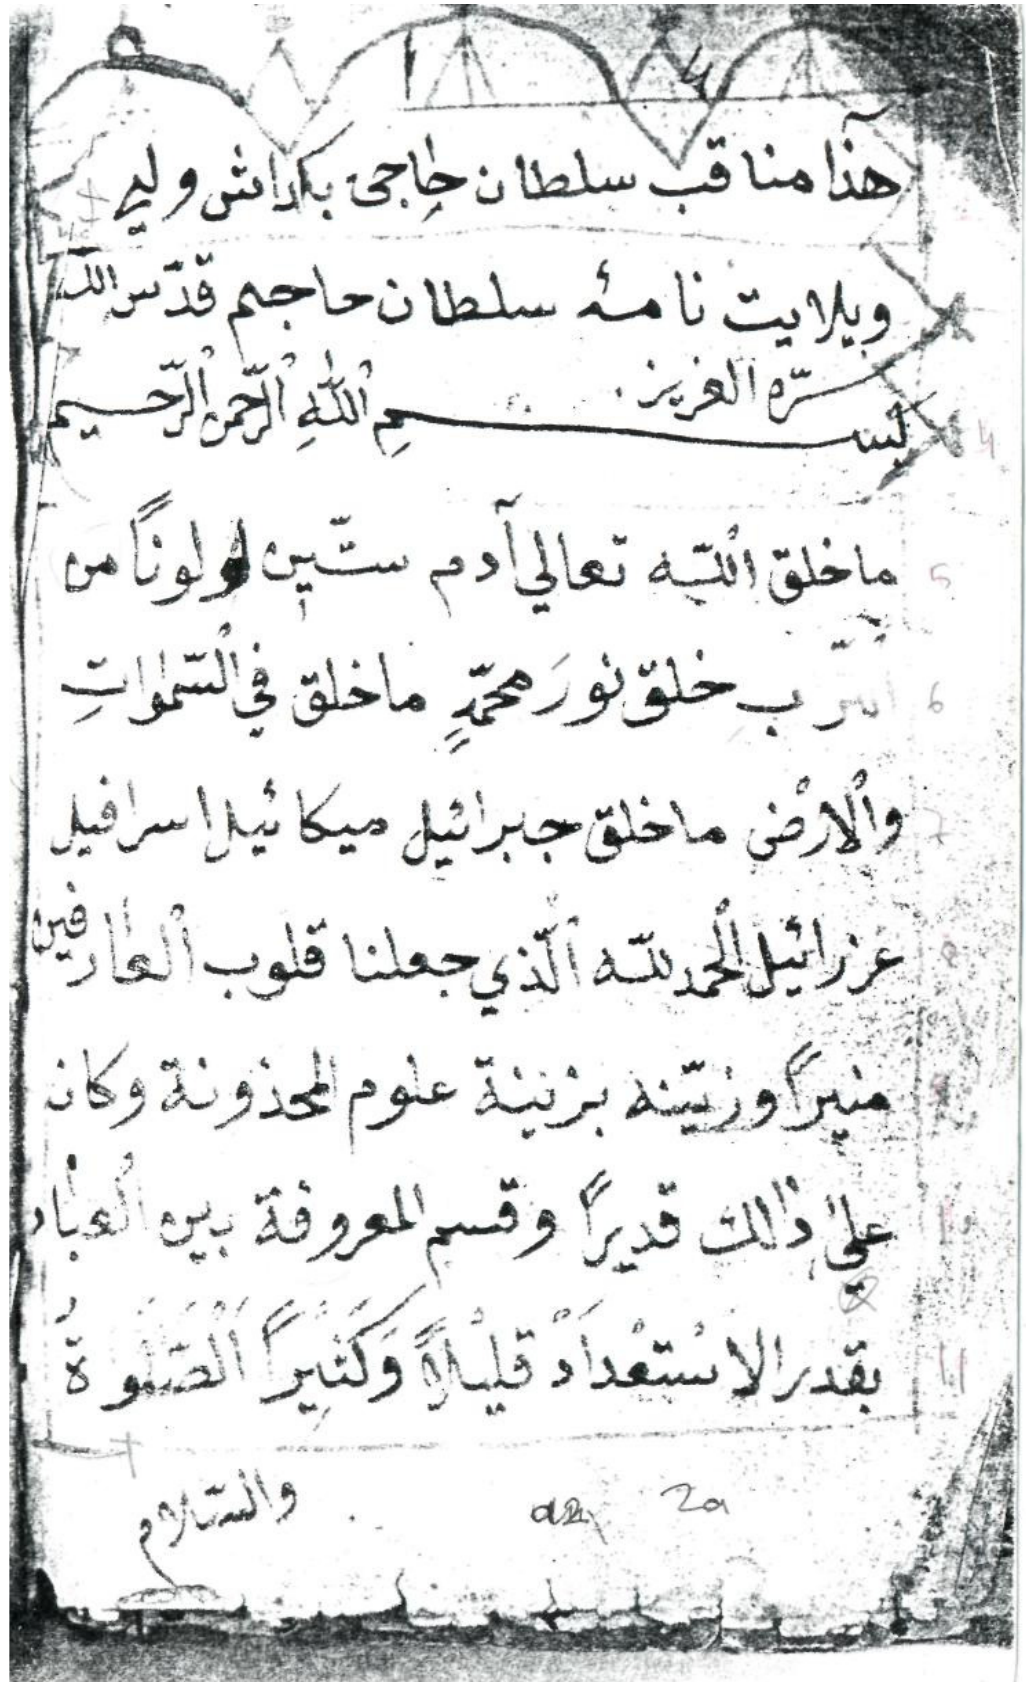 هذا مناقب سلطان حاجى بكداش ولي
ويلايت نامۀ سلطان حاجم قدّس الله
سرّه العزيز
بسم اللهِ الرّحمن الرّحيم
ماخلق اللّه تعالي آدم ستّين لونًا من
خلق نورَ محمّدٍ ماخلق في السّموٰاتِ
والارْض ماخلق جبرائيل ميكائيل اسرافيل
عزرائيل الحمد للّه الّذي جعلنا قلوب العارفين
منيرًا وزيّنه بزينة علوم المحذونة وكان
عليٰ ذٰالك قديرًا وقسم المعروفة بين العباد
بقدر الاسْتعْدادْ قليْلاً وَكَثِيرًا اَلْصَّلَوةُ
والسّلام
2a